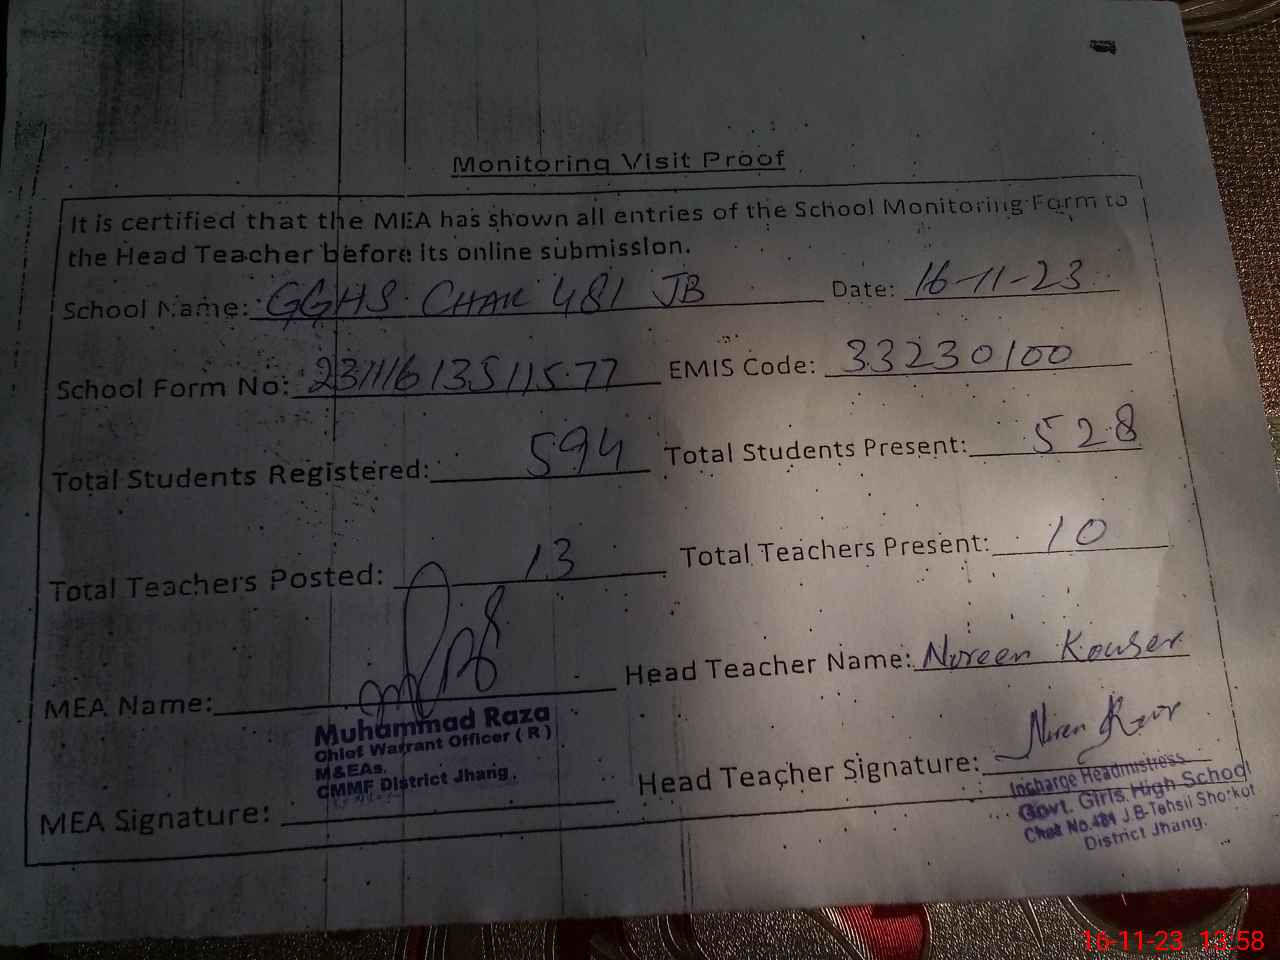 Monitoring Visit Proof
It is certified that the MEA has shown all entries of the School Monitoring Form to
the Head Teacher before its online submission.
School Name: GGHS CHAK 481 JB Date: 16-11-23
School Form No: 23111613511577 EMIS Code: 33230100
Total Students Registered: 594 Total Students Present: 528
Total Teachers Posted: 13 Total Teachers Present: 10
MEA Name: Head Teacher Name: Noreen Kouser
Muhammad Raza
Chief Warrant Officer ( R )
M&EAs.
CMMF District Jhang.
MEA Signature: Head Teacher Signature:
Incharge Headmistress
Govt. Girls High School
Chak No.481 J.B-Tehsil Shorkot
District Jhang.
16-11-23 13:58